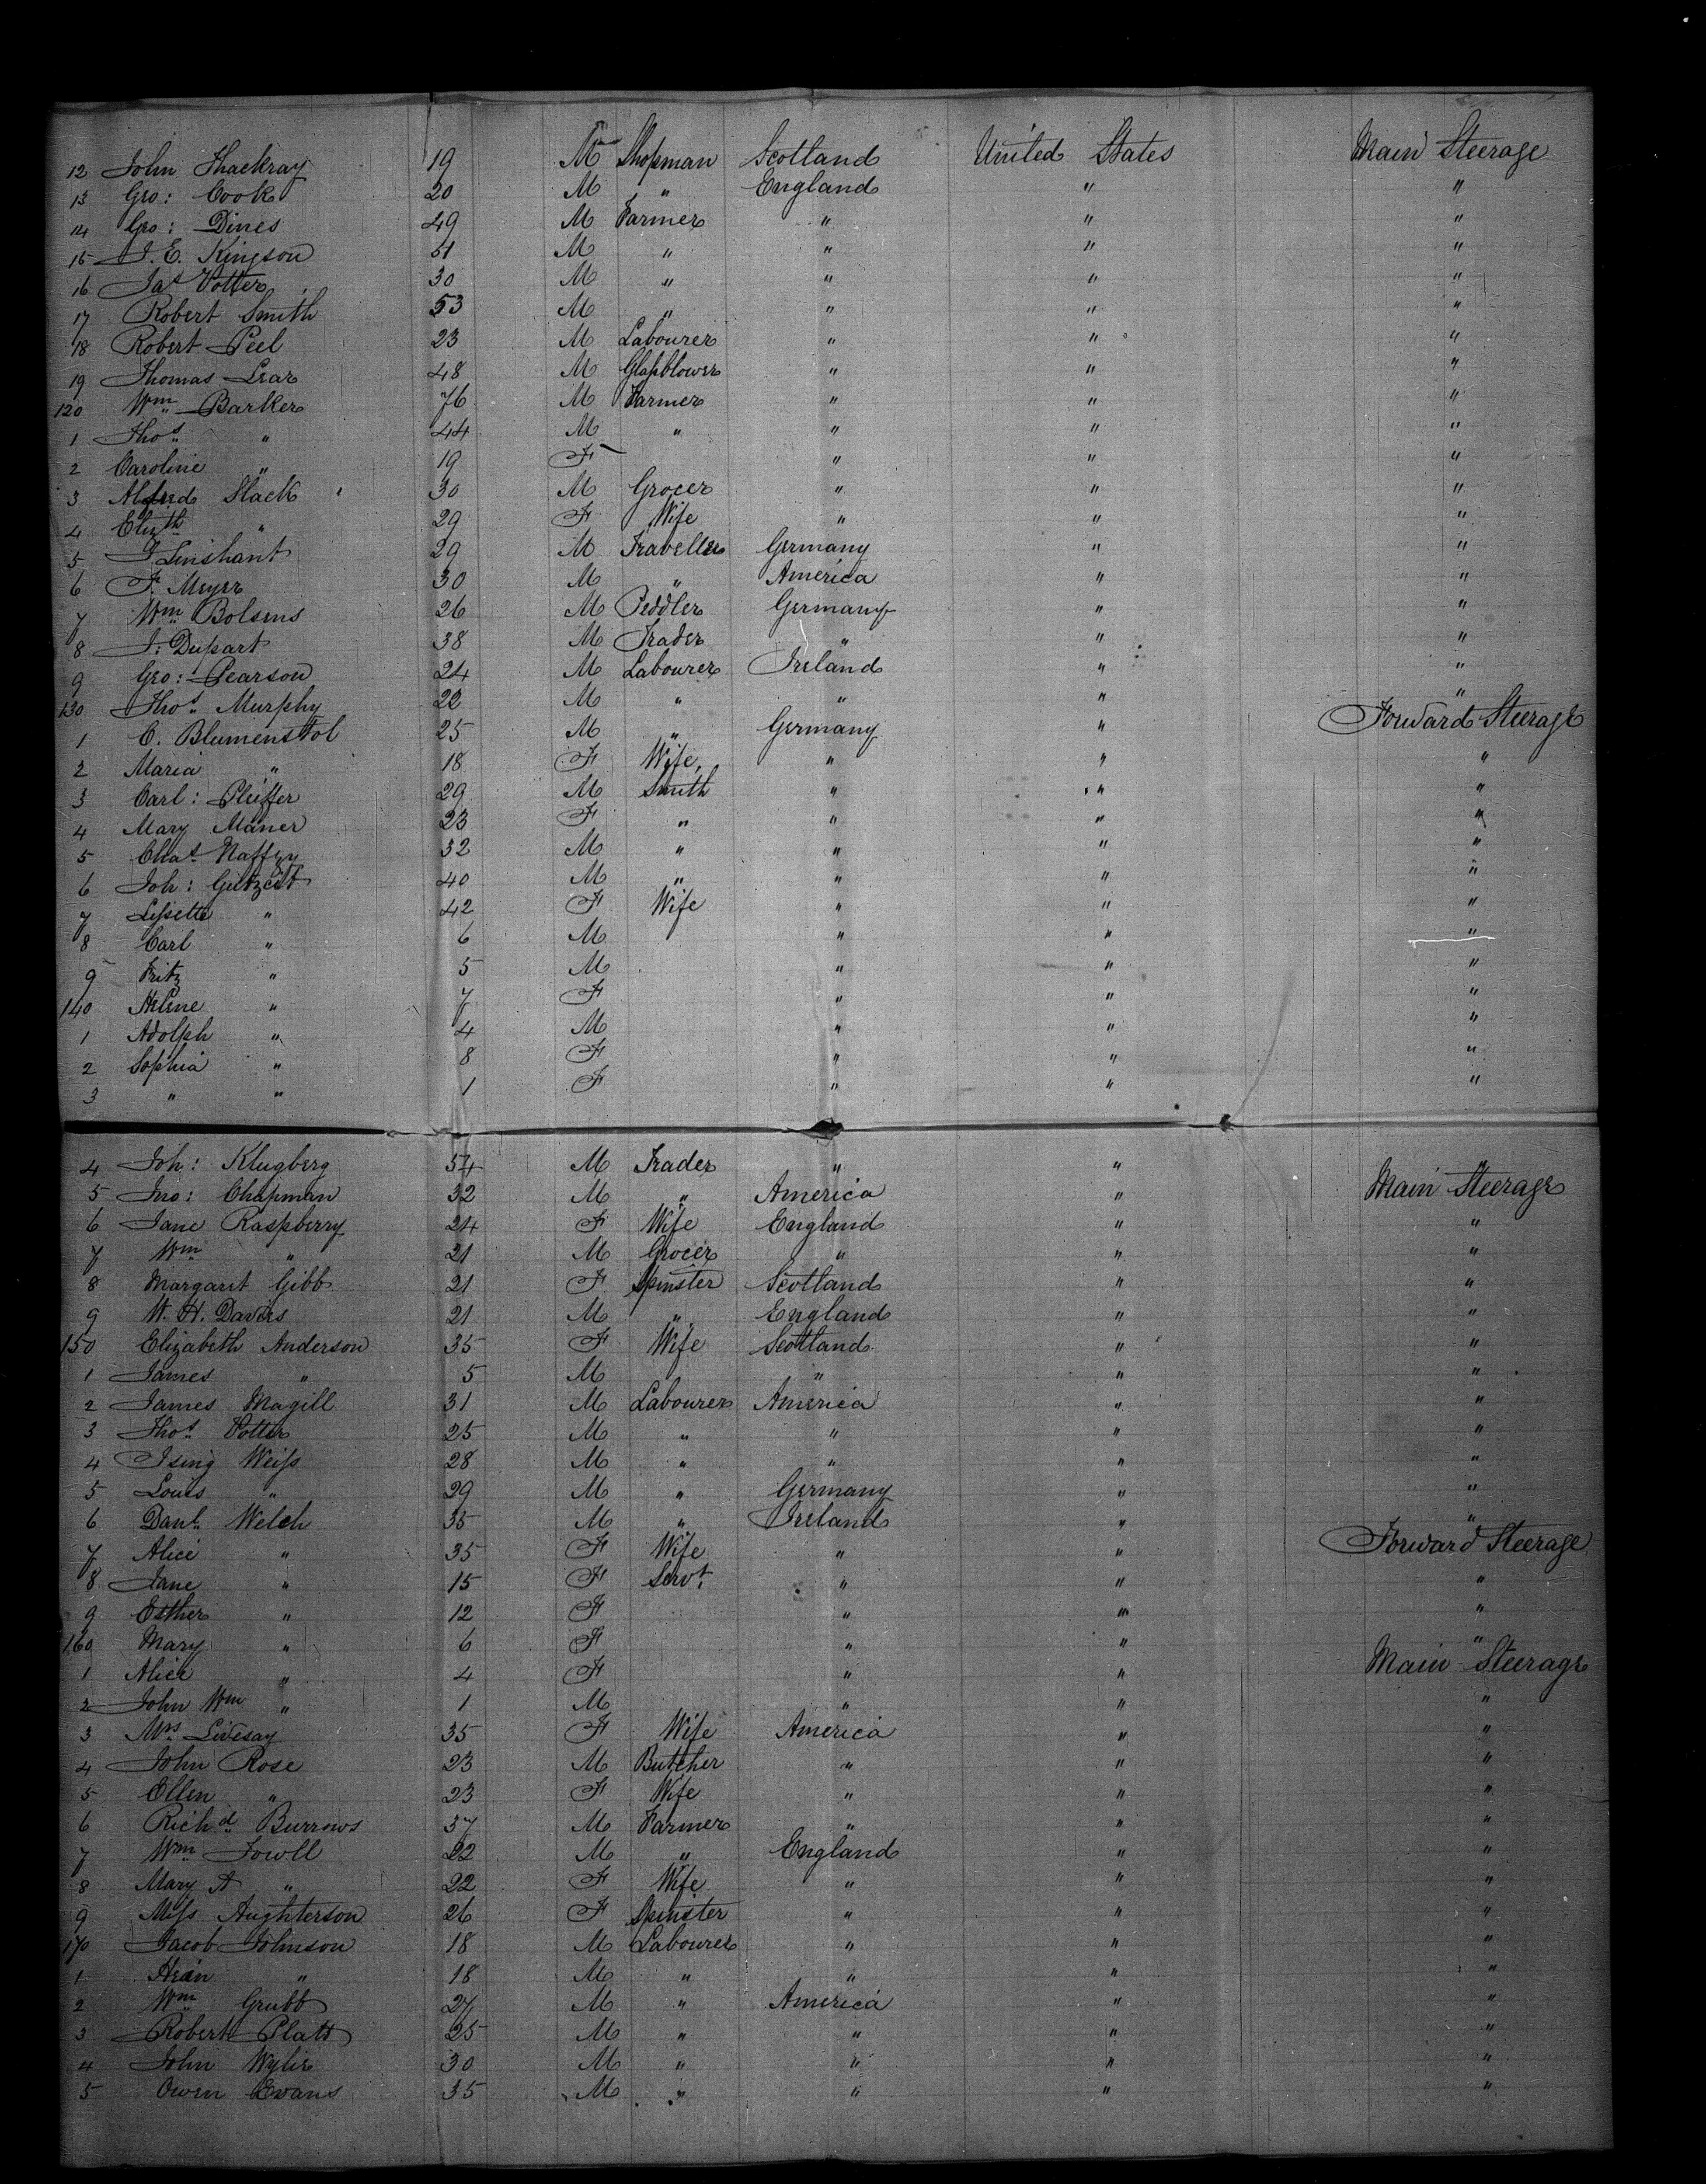 12 John Thackray 19 M Shopman Scotland United States Main Steerage
13 Geo: Cook 20 M " England " "
14 Geo: Dines 49 M Farmer " " "
15 J. E. Kingson 51 M " " " "
16 Jas Potter 30 M " " " "
17 Robert Smith 53 M " " " "
18 Robert Peel 23 M Labourer " " "
19 Thomas Lear 48 M Glassblower " " "
120 Wm Barker 76 M Farmer " " "
1 Thos " 44 M " " " "
2 Caroline " 19 F " " "
3 Alfred Slack 30 M Grocer " " "
4 Elizth " 29 F Wife " " "
5 29 M Traveller Germany " "
6 F. Meyer 30 M " America " "
7 Wm Bolsens 26 M Peddler Germany " "
8 J: Dupart 38 M Trader " " "
9 Geo: Pearson 24 M Labourer Ireland " "
130 Thos Murphy 22 M " " " "
1 C. Blumenstol 25 M " Germany " Forward Steerage
2 Maria " 18 F Wife " " "
3 Carl: Pleiffer 29 M Smith " " "
4 Mary Maner 23 F " " " "
5 Chas 32 M " " " "
6 Joh: Gutzeit 40 M " " " "
7 Lissette " 42 F Wife " " "
8 Carl " 6 M " " "
9 Fritz " 5 M " " "
140 Helene " 7 F " " "
1 Adolph " 4 M " " "
2 Sophia " 8 F " " "
3 " " 1 F " " "
4 Joh: Klugberg 54 M Trader " " "
5 Jno: Chapman 32 M " America " Main Steerage
6 Jane Raspberry 24 F Wife England " "
7 Wm " 21 M Grocer " " "
8 Margaret Gibb 21 F Spinster Scotland " "
9 W. H. Davies 21 M " England " "
150 Elizabeth Anderson 35 F Wife Scotland " "
1 James " 5 M " " "
2 James Magill 31 M Labourer America " "
3 Thos Potter 25 M " " " "
4 Ising Weiss 28 M " " " "
5 Louis " 29 M " Germany " "
6 Danl Welch 35 M " Ireland " "
7 Alice " 35 F Wife " " Forward Steerage
8 Jane " 15 F Servt " " "
9 Esther " 12 F " " "
160 Mary " 6 F " " "
1 Alice " 4 F " " Main Steerage
2 John Wm " 1 M " " "
3 Mrs Livesay 35 F Wife America " "
4 John Rose 23 M Butcher " " "
5 Ellen " 23 F Wife " " "
6 Richd Burrows 37 M Farmer " " "
7 Wm Jowll 22 M " England " "
8 Mary A " 22 F Wife " " "
9 Miss Aughterson 26 F Spinster " " "
170 Jacob Johnson 18 M Labourer " " "
1 " 18 M " " " "
2 Wm Grubb 27 M " America " "
3 Robert Platt 25 M " " " "
4 John Wylie 30 M " " " "
5 Owen Evans 35 M " " " "